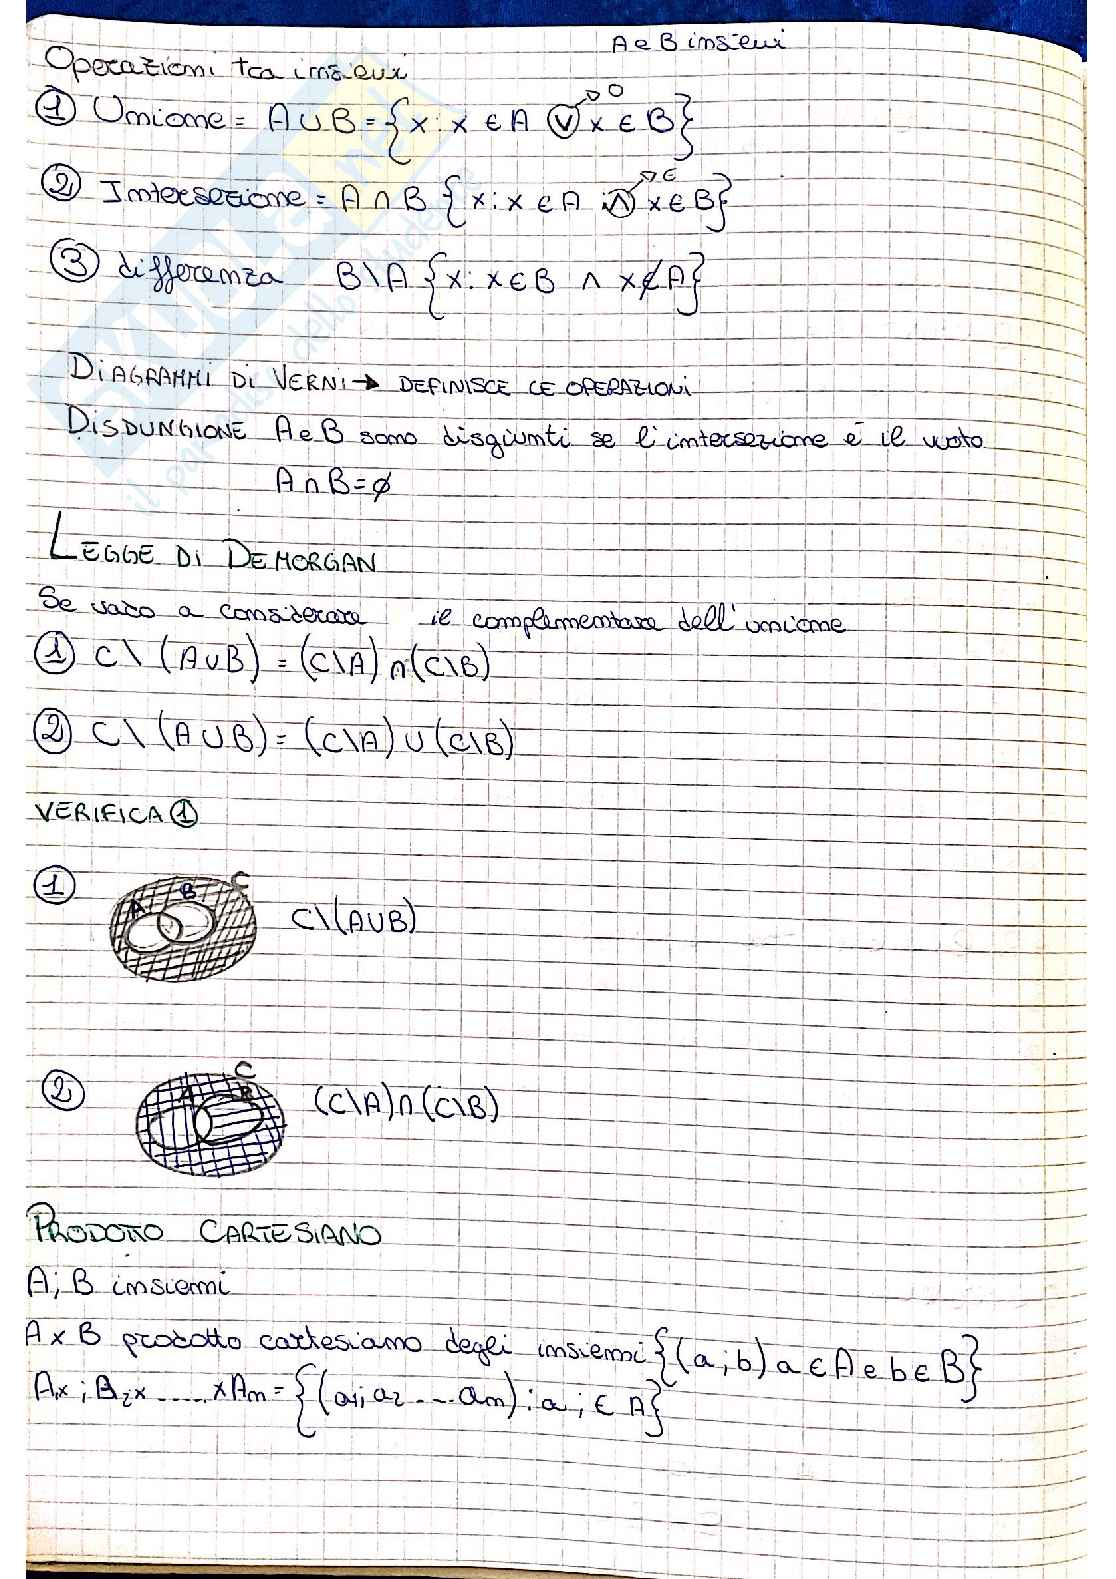 A e B insiemi
Operazioni tra insiemi
① Unione = A ∪ B = {x : x ∈ A ∨ x ∈ B} → O
② Intersezione = A ∩ B {x : x ∈ A ∧ x ∈ B} → E
③ differenza B \ A {x : x ∈ B ∧ x ∉ A}
DIAGRAMMI DI VERNI → DEFINISCE LE OPERAZIONI
DISDUNGIONE A e B sono disgiunti se l'intersezione è il vuoto
A ∩ B = ∅
LEGGE DI DEMORGAN
Se vado a considerare il complementare dell'unione
① C \ (A ∪ B) = (C\A) ∩ (C\B)
② C \ (A ∪ B) = (C\A) ∪ (C\B)
VERIFICA ①
① A B C C\(A∪B)
② A B C (C\A)∩(C\B)
PRODOTTO CARTESIANO
A; B insiemi
A x B prodotto cartesiano degli insiemi {(a; b) a ∈ A e b ∈ B}
Ax; B₂x ..... x Aₙ = {(a₁; a₂ ... aₙ) : a; ∈ A}